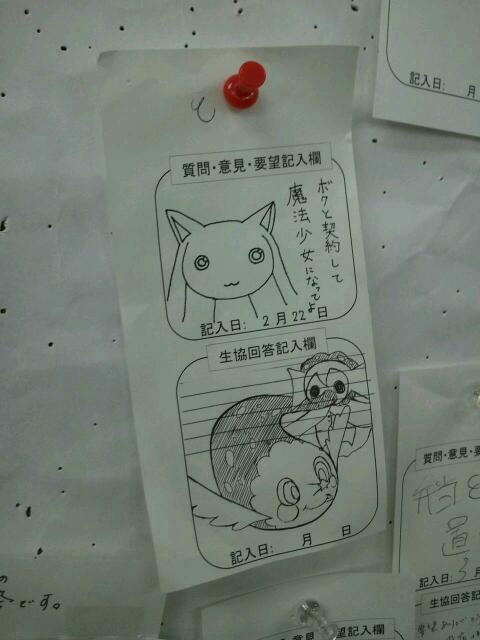 記入日: 月
て
質問・意見・要望記入欄
ボクと契約して
魔法少女になってよ
記入日: 2月22日
生協回答記入欄
記入日: 月 日
質問・意見・要
記入日: 3月
生協回答記
です。
望記入欄